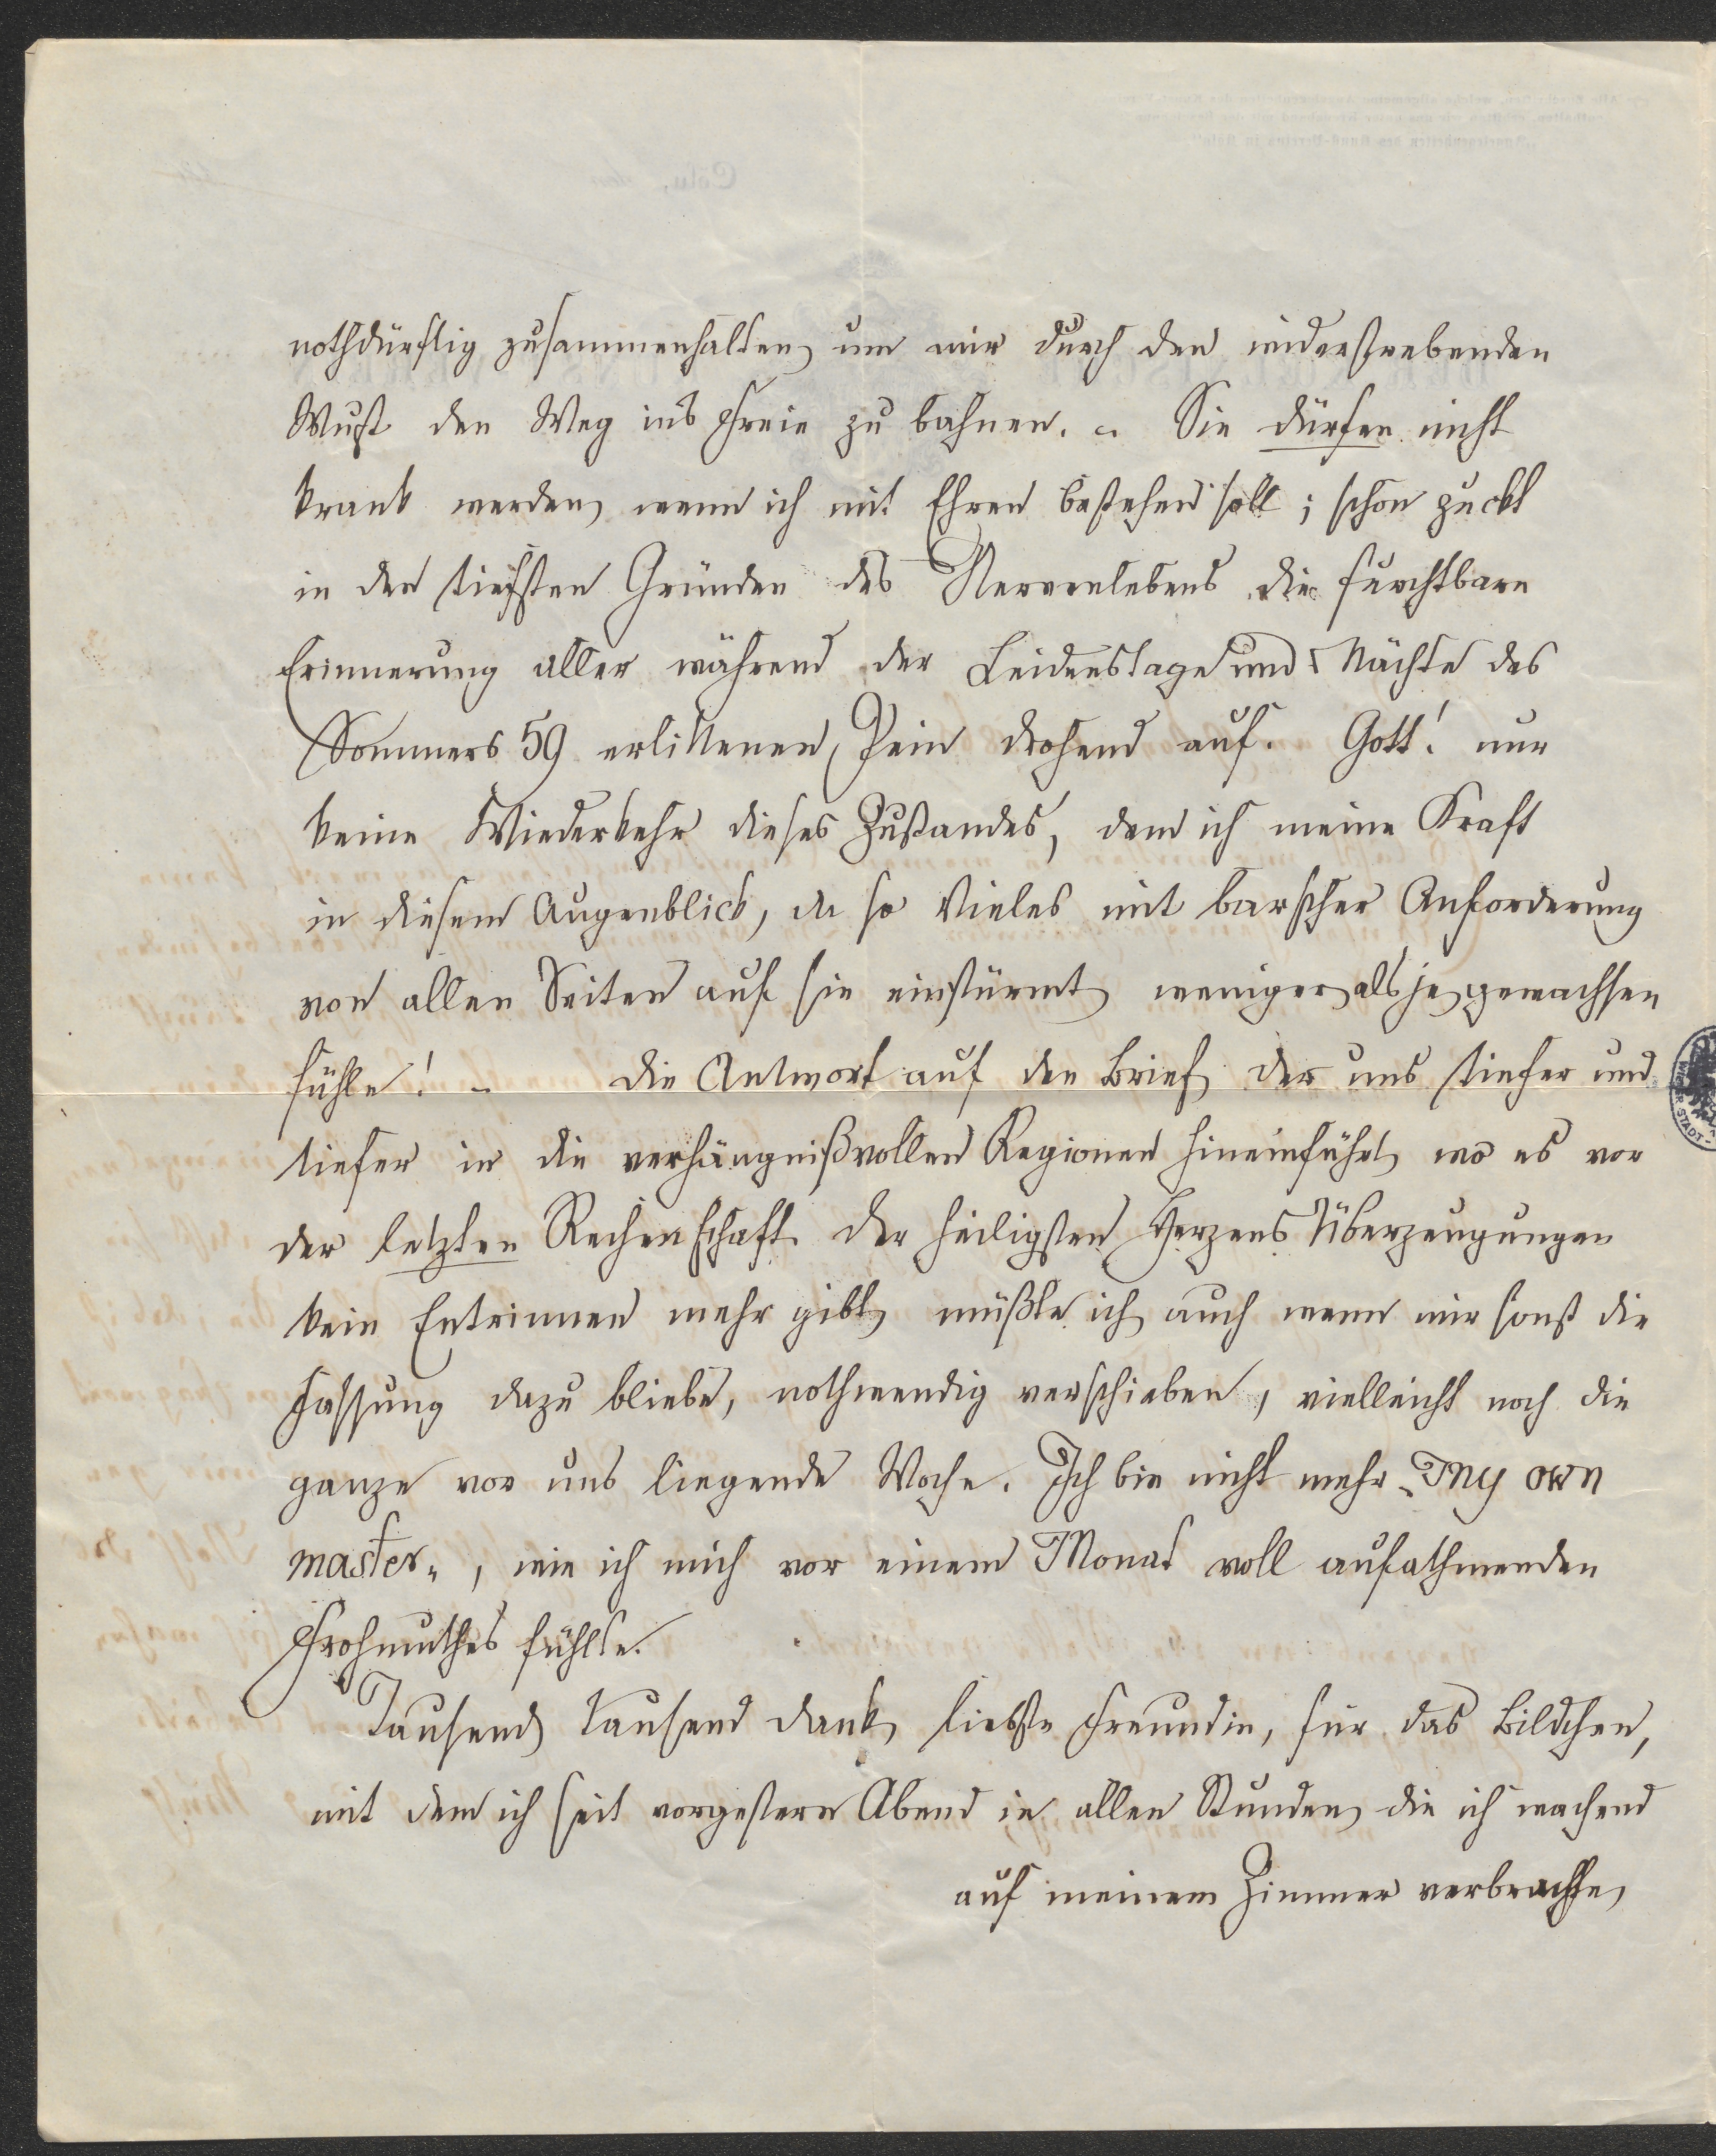 nothdürftig zusammenhalten, um mir durch den widerstrebenden
Wust den Weg ins Freie zu bahnen. – Sie dürfen nicht
krank werden, wenn ich mit Ehren bestehen soll; schon zuckt
in den tiefsten Gründen des Nervenlebens die furchtbare
Erinnerung aller während der Leidenstage und Nächte des
Sommers 59 erlittenen Pein drohend auf. Gott! nur
keine Wiederkehr dieses Zustandes, dem ich meine Kraft
in diesem Augenblick, da so Vieles mit barscher Anforderung
von allen Seiten auf sie einstürmt, weniger als je gewachsen
fühle! – Die Antwort auf den Brief, der uns tiefer und
tiefer in die verhängnißvollen Regionen hineinführt, wo es vor
der letzten Rechenschaft der heiligsten Herzens Überzeugungen
kein Entrinnen mehr gibt, müßte ich, auch wenn mir sonst die
Fassung dazu bliebe, nothwendig verschieben, vielleicht noch die
ganze vor uns liegende Woche. Ich bin nicht mehr „my own
master“, wie ich mich vor einem Monat voll aufathmenden
Frohmuthes fühlte.
Tausend, tausend Dank, liebste Freundin, für das Bildchen,
mit dem ich seit vorgestern Abend in allen Stunden, die ich wachend
auf meinem Zimmer verbrachte,